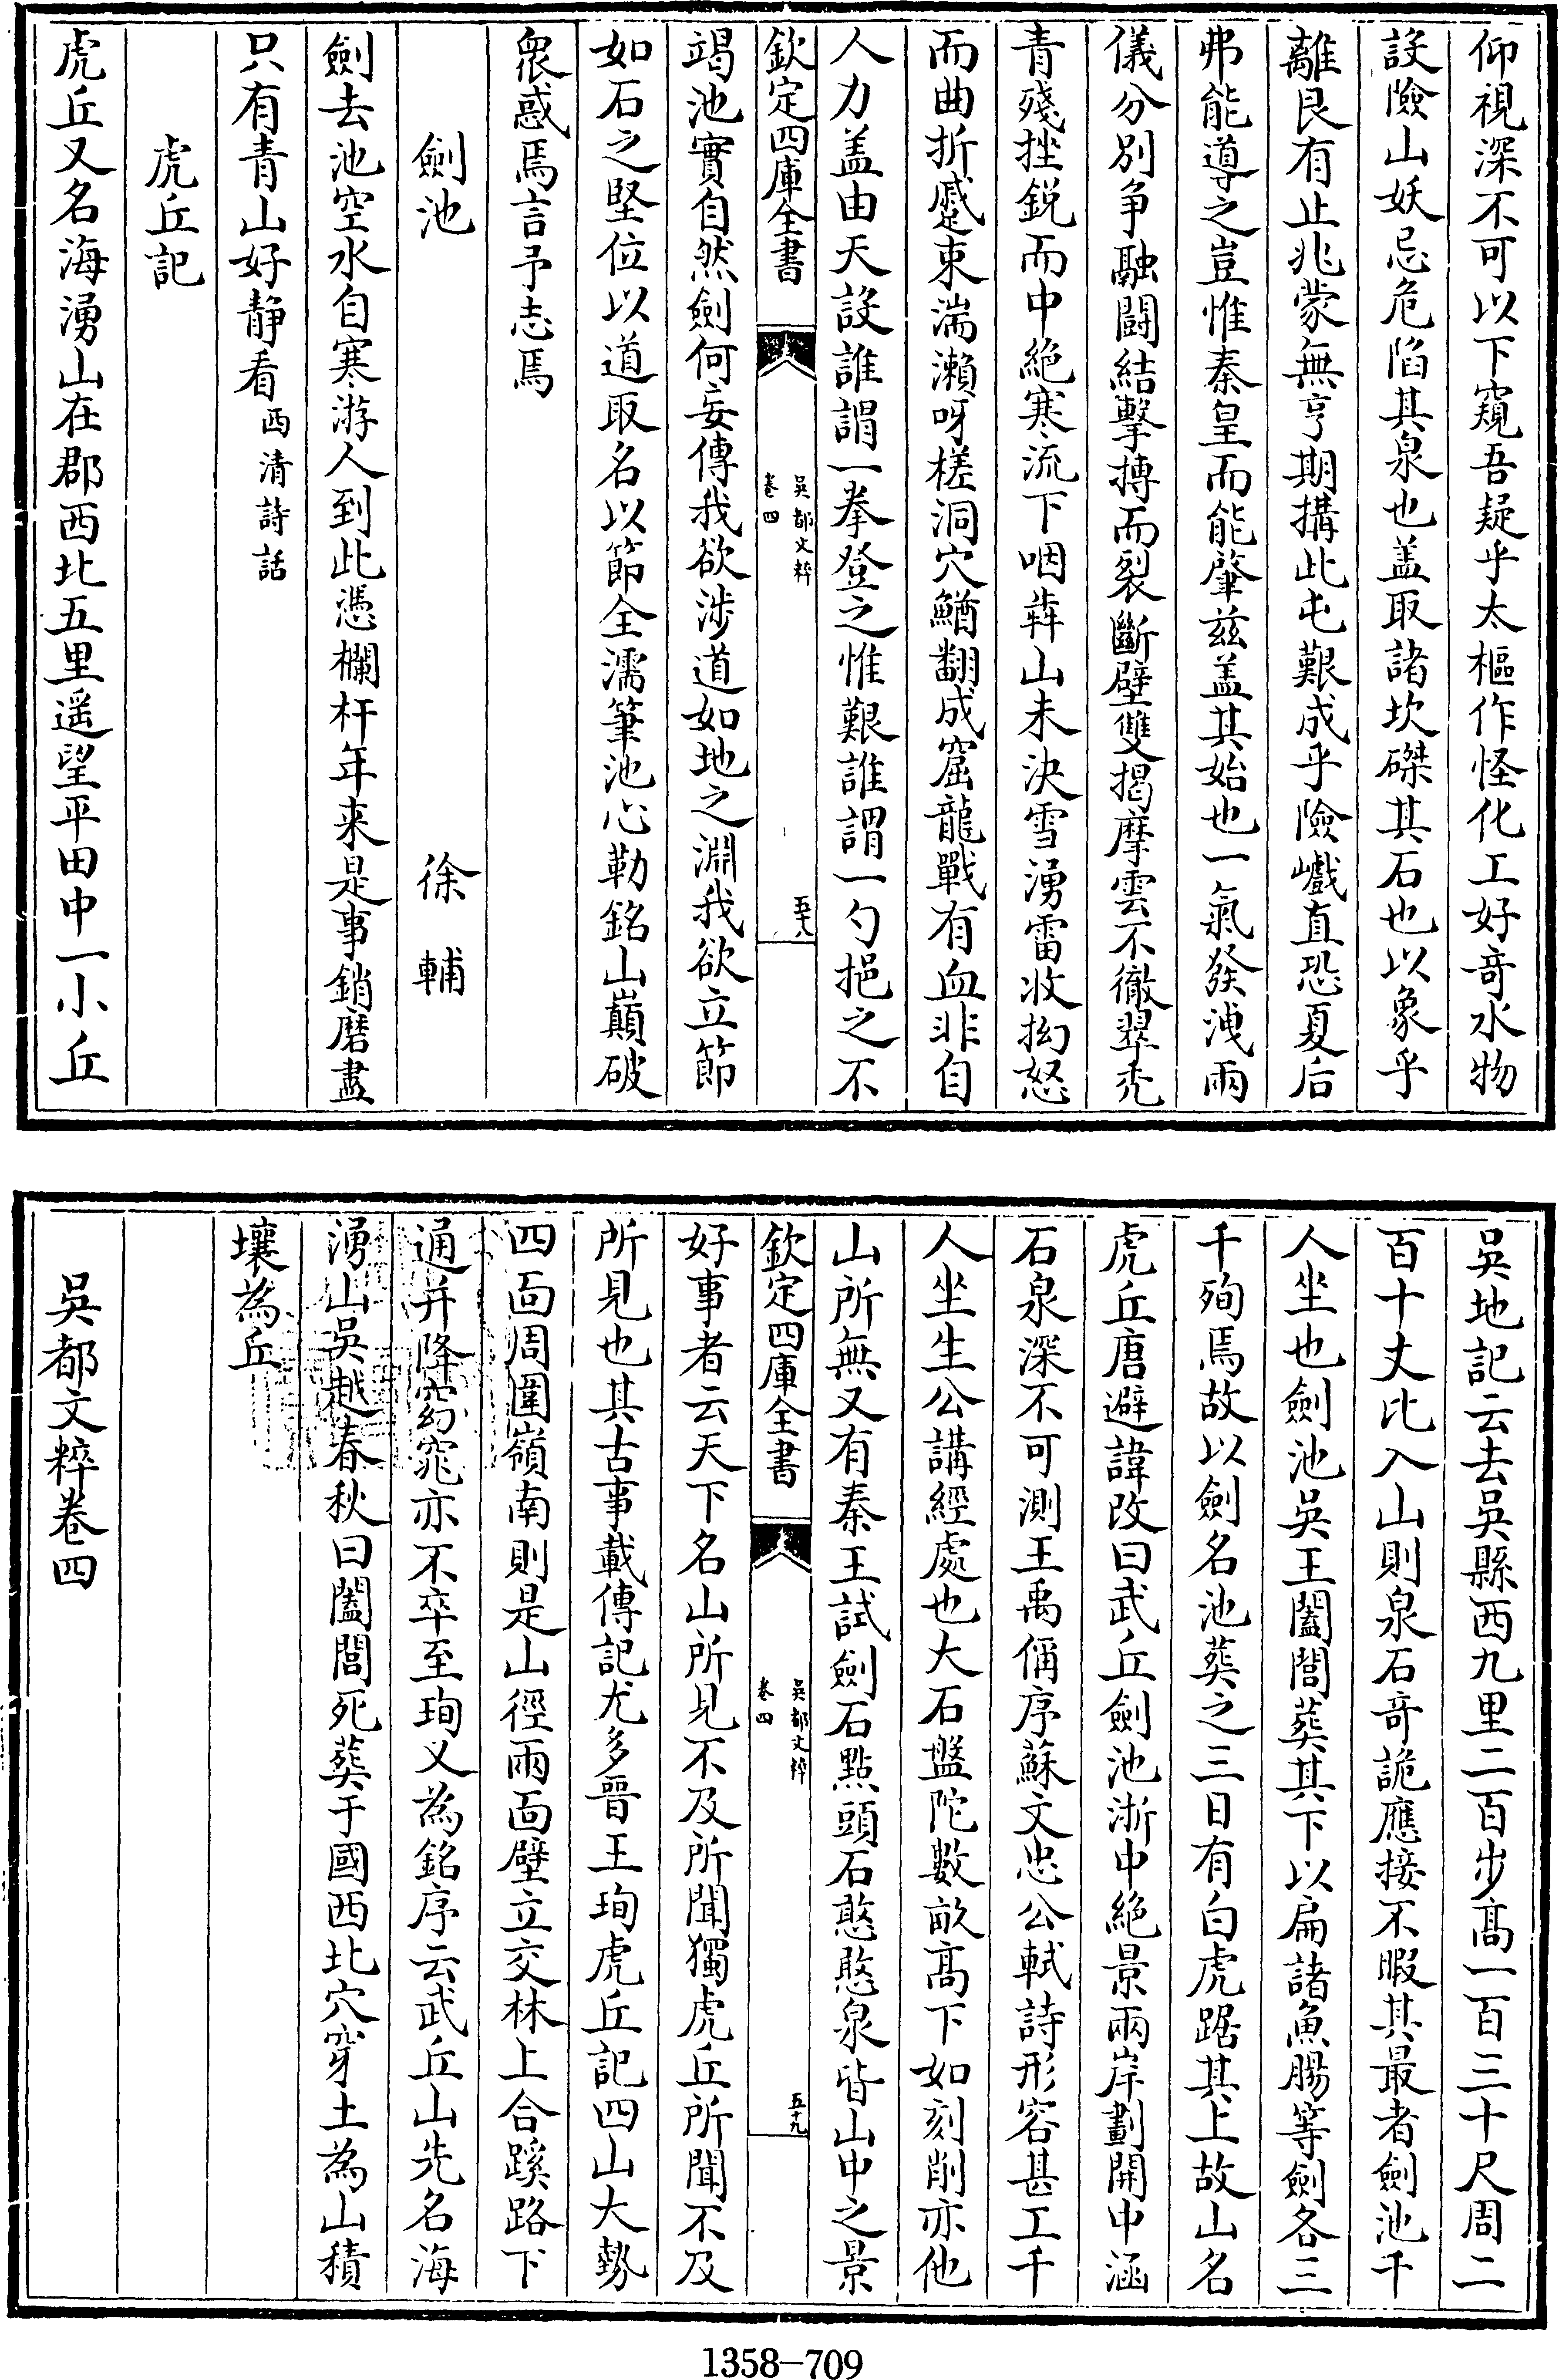 仰視深不可以下窺吾疑乎太樞作怪化工好竒水物
設險山妖忌危陷其泉也盖取諸坎磔其石也以象乎
離艮有止兆蒙無亨期搆此屯艱成乎險巇直恐夏后
弗能導之豈惟秦皇而能肇兹盖其始也一氣發洩兩
儀分別争融鬪結擊搏而裂斷壁雙揭摩雲不徹翠秃
青殘挫鋭而中絶寒流下咽犇山未決雪湧雷收抝怒
而曲折蹙束湍瀨呀槎洞穴鰌翻成窟龍戰有血非自
人力盖由天設誰謂一拳登之惟艱誰謂一勺挹之不
欽定四庫全書
吳都文粹
卷四
五十八
竭池實自然劍何妄傳我欲涉道如地之淵我欲立節
如石之堅位以道取名以節全濡筆池心勒銘山巔破
衆惑焉言予志焉
劍池 徐輔
劍去池空水自寒游人到此憑欄杆年来是事銷磨盡
只有青山好静看西清詩話
虎丘記
虎丘又名海湧山在郡西北五里遥望平田中一小丘
吳地記云去吳縣西九里二百步髙一百三十尺周二
百十丈比入山則泉石竒詭應接不暇其最者劍池千
人坐也劍池吳王闔閭葬其下以扁諸魚腸等劍各三
千殉焉故以劍名池葬之三日有白虎踞其上故山名
虎丘唐避諱改曰武丘劍池浙中絶景兩岸劃開中涵
石泉深不可測王禹偁序蘇文忠公軾詩形容甚工千
人坐生公講經處也大石盤陀數畝髙下如刻削亦他
山所無又有秦王試劍石點頭石憨憨泉皆山中之景
欽定四庫全書
吳都文粹
卷四
五十九
好事者云天下名山所見不及所聞獨虎丘所聞不及
所見也其古事載傳記尤多晉王珣虎丘記四山大勢
四面周圍嶺南則是山徑兩面壁立交林上合蹊路下
通升降窈窕亦不卒至珣又為銘序云武丘山先名海
湧山吳越春秋曰闔閭死葬于國西北穴穿土為山積
壤為丘
吳都文粹卷四
1358-709